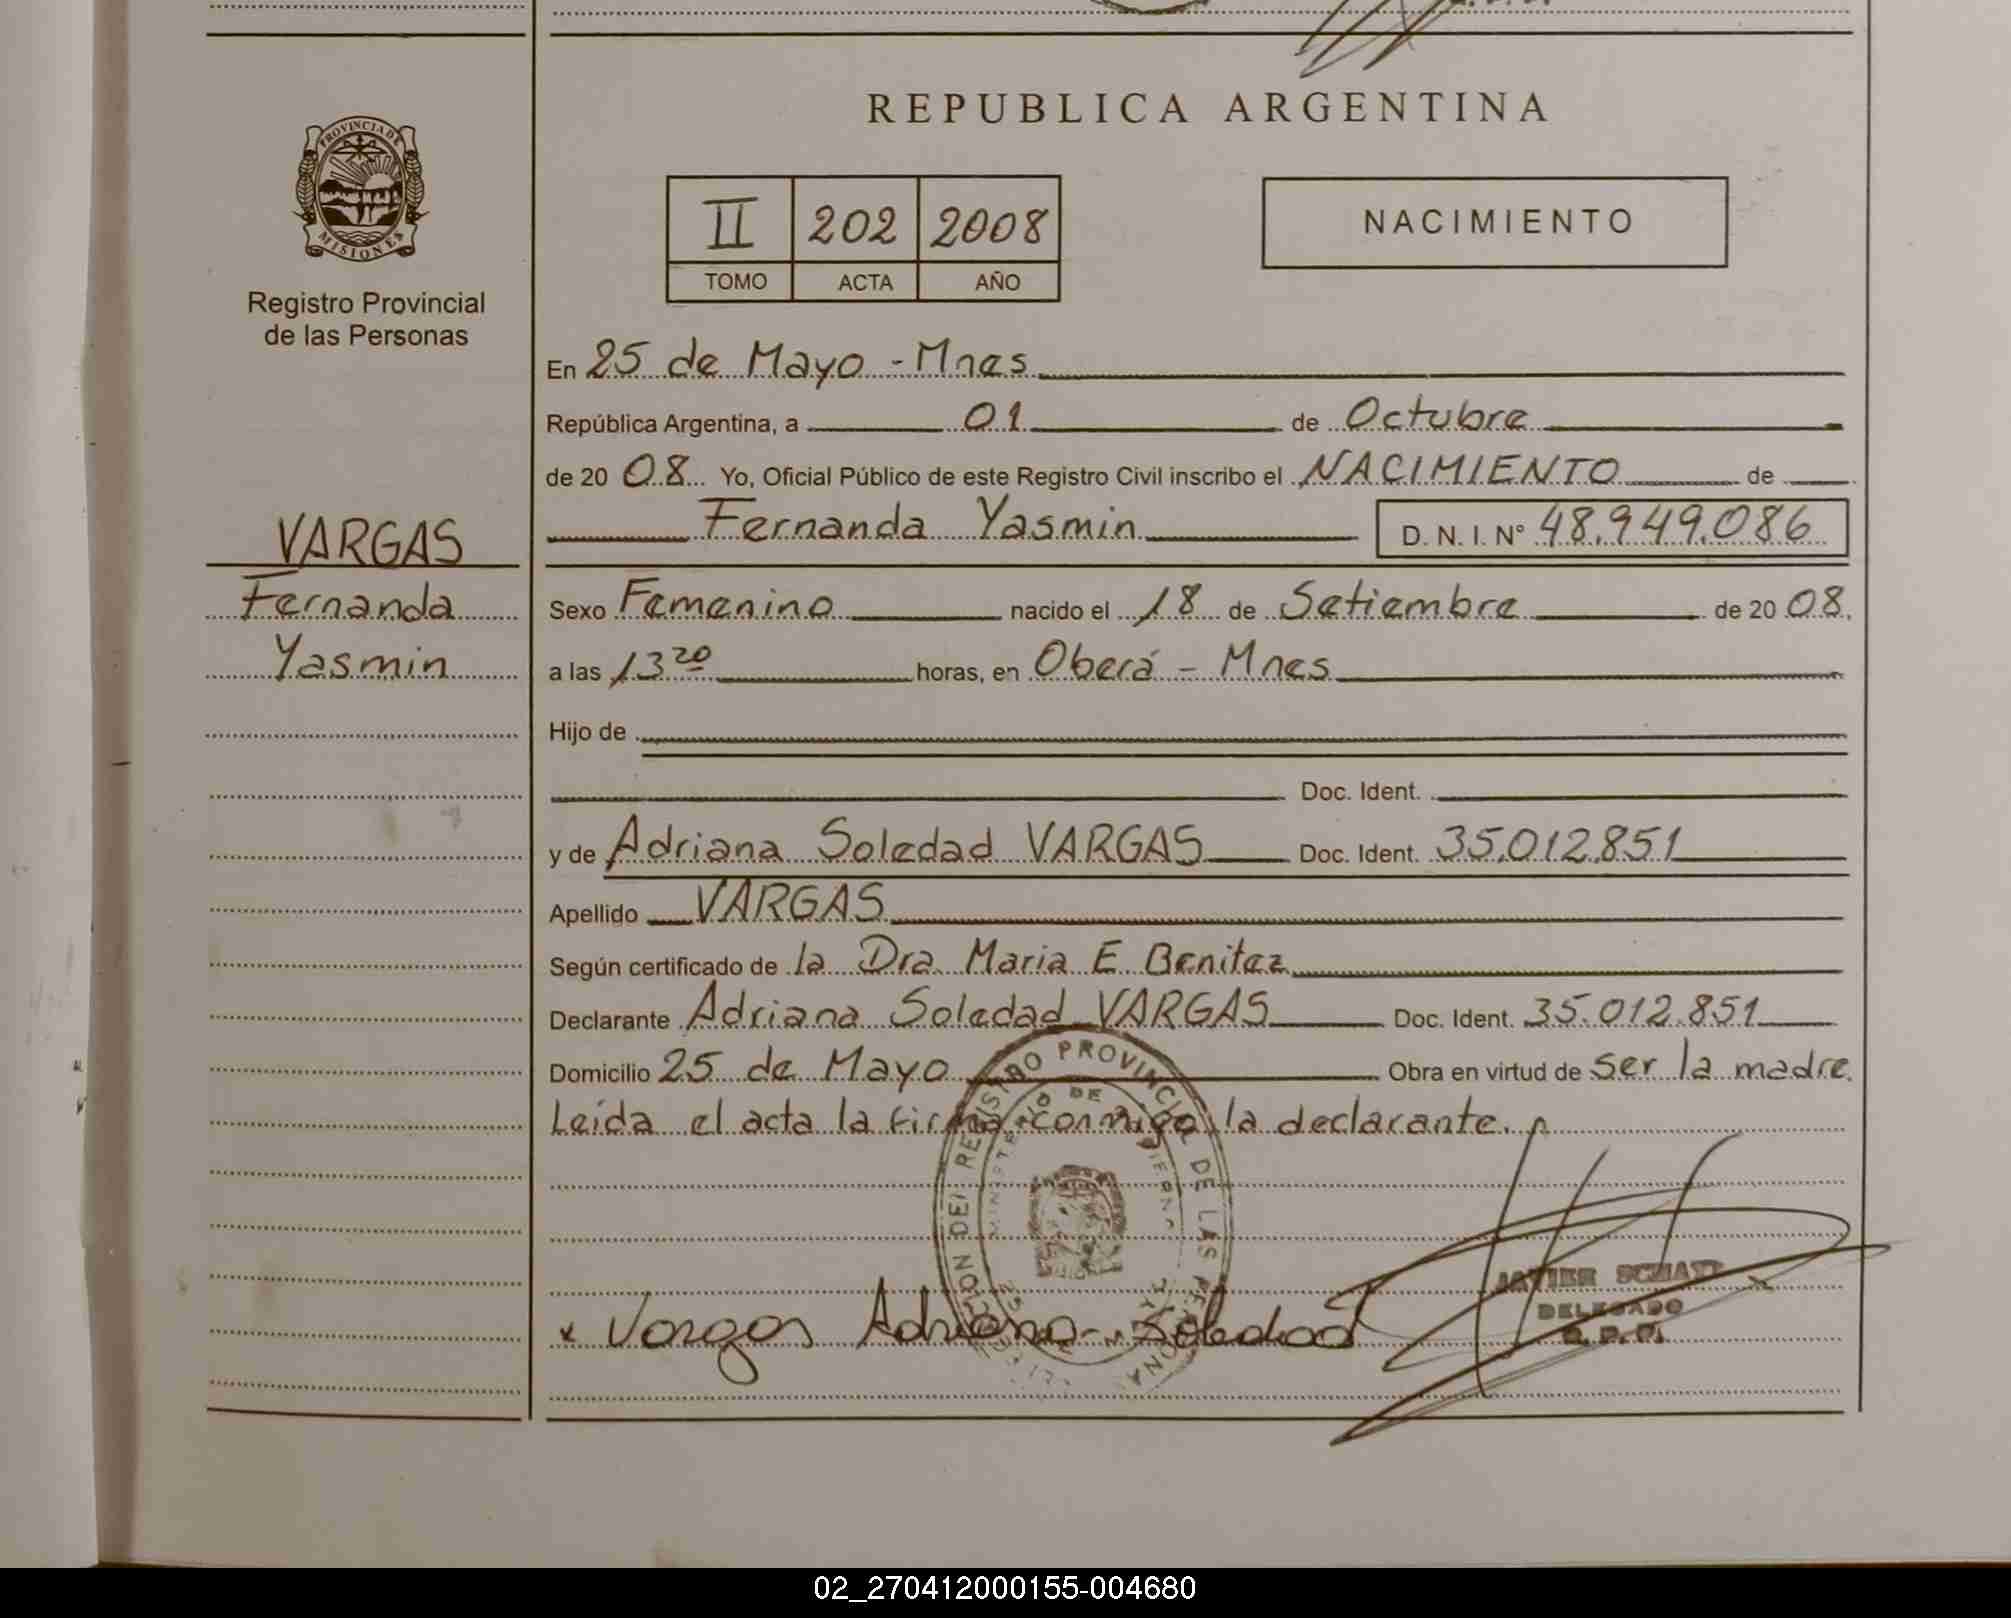 REPUBLICA ARGENTINA
PROVINCIA DE
MISIONES
Registro Provincial
de las Personas
II 202 2008
TOMO ACTA AÑO
NACIMIENTO
En 25 de Mayo - Mnes
República Argentina, a 01 de Octubre
de 20 08 Yo, Oficial Público de este Registro Civil inscribo el NACIMIENTO de
Fernanda Yasmin D. N. I. N° 48.949.086
VARGAS
Fernanda
Yasmin
Sexo Femenino nacido el 18 de Setiembre de 20 08
a las 13 20 horas, en Oberá - Mnes
Hijo de
Doc. Ident.
y de Adriana Soledad VARGAS Doc. Ident. 35.012.851
Apellido VARGAS
Según certificado de la Dra. Maria E. Benitez
Declarante Adriana Soledad VARGAS Doc. Ident. 35.012.851
Domicilio 25 de Mayo Obra en virtud de ser la madre.
Leída el acta la firma conmigo la declarante.
REGISTRO PROVINCIAL DE LAS PERSONAS
MINISTERIO DE GOBIERNO
x Vargas Adriana Soledad
JAVIER
DELEGADO
02_270412000155-004680